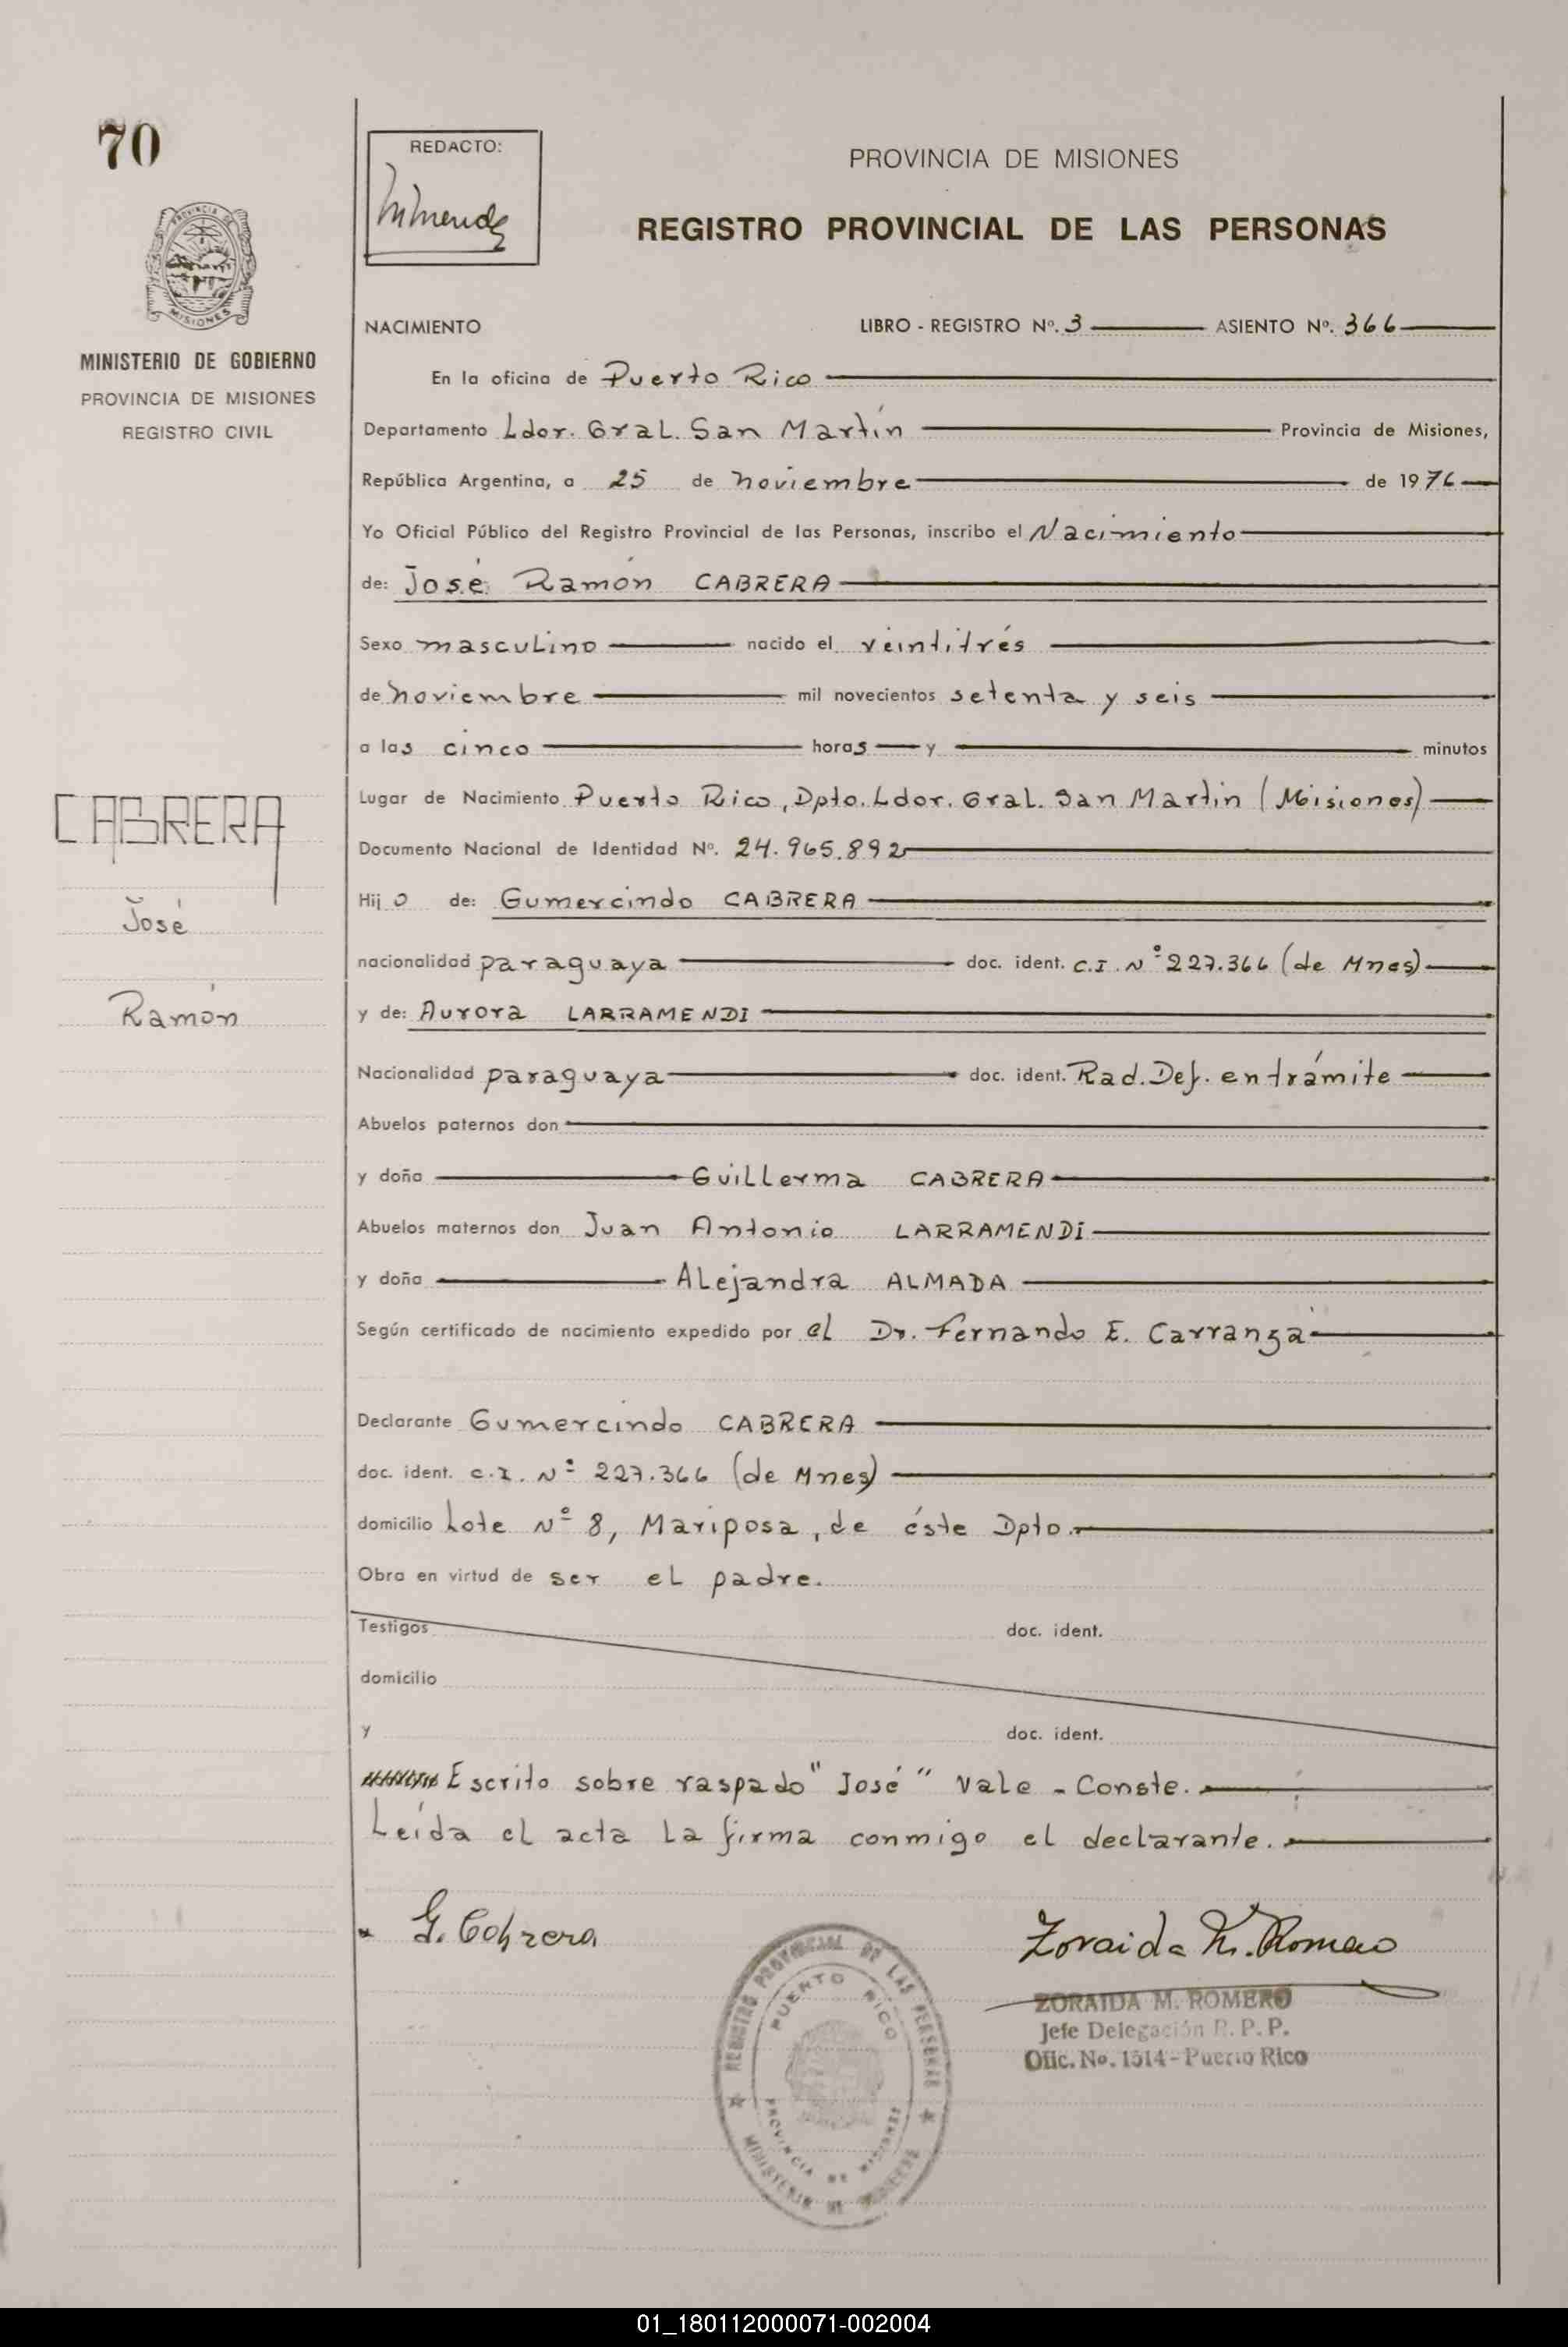 70
REDACTO:
PROVINCIA DE MISIONES
REGISTRO PROVINCIAL DE LAS PERSONAS
PROVINCIA DE MISIONES
MINISTERIO DE GOBIERNO
PROVINCIA DE MISIONES
REGISTRO CIVIL
NACIMIENTO LIBRO - REGISTRO Nº. 3 ASIENTO Nº. 366
En la oficina de Puerto Rico
Departamento Ldor. Gral. San Martín Provincia de Misiones,
República Argentina, a 25 de noviembre de 1976
Yo Oficial Público del Registro Provincial de las Personas, inscribo el Nacimiento
de: José Ramón CABRERA
Sexo masculino nacido el veintitrés
de noviembre mil novecientos setenta y seis
a las cinco horas y minutos
Lugar de Nacimiento Puerto Rico, Dpto. Ldor. Gral. San Martín (Misiones)
Documento Nacional de Identidad Nº. 24.965.892
Hijo de: Gumercindo CABRERA
nacionalidad paraguaya doc. ident. C.I. Nº 227.366 (de Mnes)
y de: Aurora LARRAMENDI
Nacionalidad paraguaya doc. ident. Rad. Def. en trámite
Abuelos paternos don
y doña Guillerma CABRERA
Abuelos maternos don Juan Antonio LARRAMENDI
y doña Alejandra ALMADA
Según certificado de nacimiento expedido por el Dr. Fernando E. Carranza
Declarante Gumercindo CABRERA
doc. ident. C.I. Nº 227.366 (de Mnes)
domicilio Lote Nº 8, Mariposa, de éste Dpto.
Obra en virtud de ser el padre.
Testigos doc. ident.
domicilio
y doc. ident.
Escrito sobre raspado "José" Vale - Conste.
Leída el acta la firma conmigo el declarante.
CABRERA
José
Ramón
G. Cabrera
Zoraida M. Romero
ZORAIDA M. ROMERO
Jefe Delegación R. P. P.
Ofic. No. 1514 - Puerto Rico
REGISTRO PROVINCIAL DE LAS PERSONAS
PUERTO RICO
PROVINCIA DE MISIONES
MINISTERIO DE GOBIERNO
01_180112000071-002004